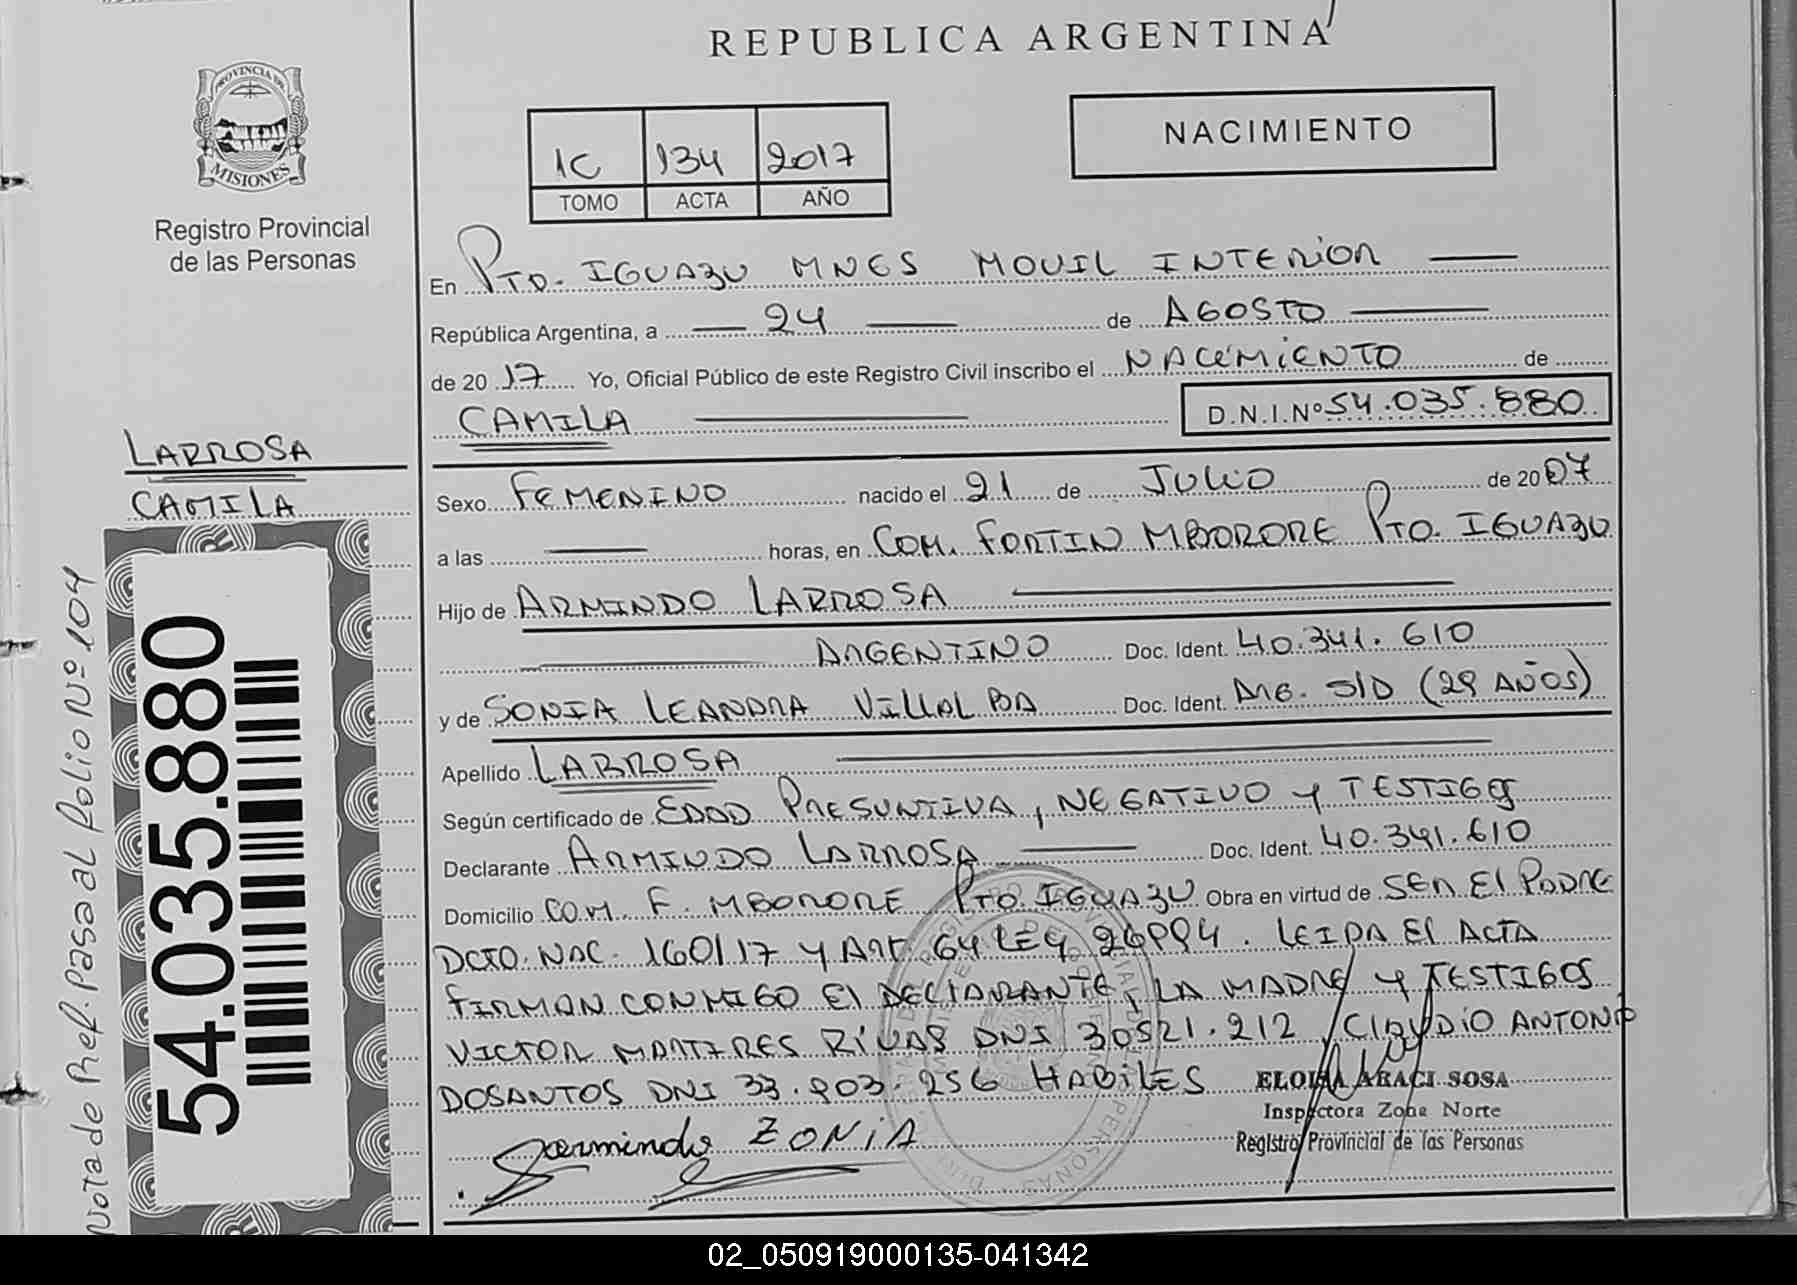 REPUBLICA ARGENTINA
PROVINCIA DE
MISIONES
Registro Provincial
de las Personas
1C 134 2017
TOMO ACTA AÑO
NACIMIENTO
En PTO. IGUAZU MNES MOVIL INTERIOR
República Argentina, a 24 de AGOSTO
de 20 17 Yo, Oficial Público de este Registro Civil inscribo el NACIMIENTO de
CAMILA D.N.I.Nº 54.035.880
LARROSA
CAMILA
Sexo FEMENINO nacido el 21 de JULIO de 20 07
a las horas, en COM. FORTIN MBORORE PTO. IGUAZU
Hijo de ARMINDO LARROSA
ARGENTINO Doc. Ident. 40.341.610
y de SONIA LEANDRA VILLALBA Doc. Ident. ARG. S/D (29 AÑOS)
Apellido LARROSA
Según certificado de EDAD PRESUNTIVA, NEGATIVO Y TESTIGOS
Declarante ARMINDO LARROSA Doc. Ident. 40.341.610
Domicilio COM. F. MBORORE PTO. IGUAZU Obra en virtud de SER EL PADRE
DCTO. NAC. 160/17 Y ART 64 LEY 26994. LEIDA EL ACTA
FIRMAN CONMIGO EL DECLARANTE, LA MADRE Y TESTIGOS
VICTOR MARTIRES RIVAS DNI 30521.212 / CLAUDIO ANTONIO
DOSANTOS DNI 33.903.256 HABILES
ELOISA ARACI SOSA
Inspectora Zona Norte
Registro Provincial de las Personas
armindo ZONIA
54.035.880
Nota de Ref. Pasa al Folio Nº 104
02_050919000135-041342